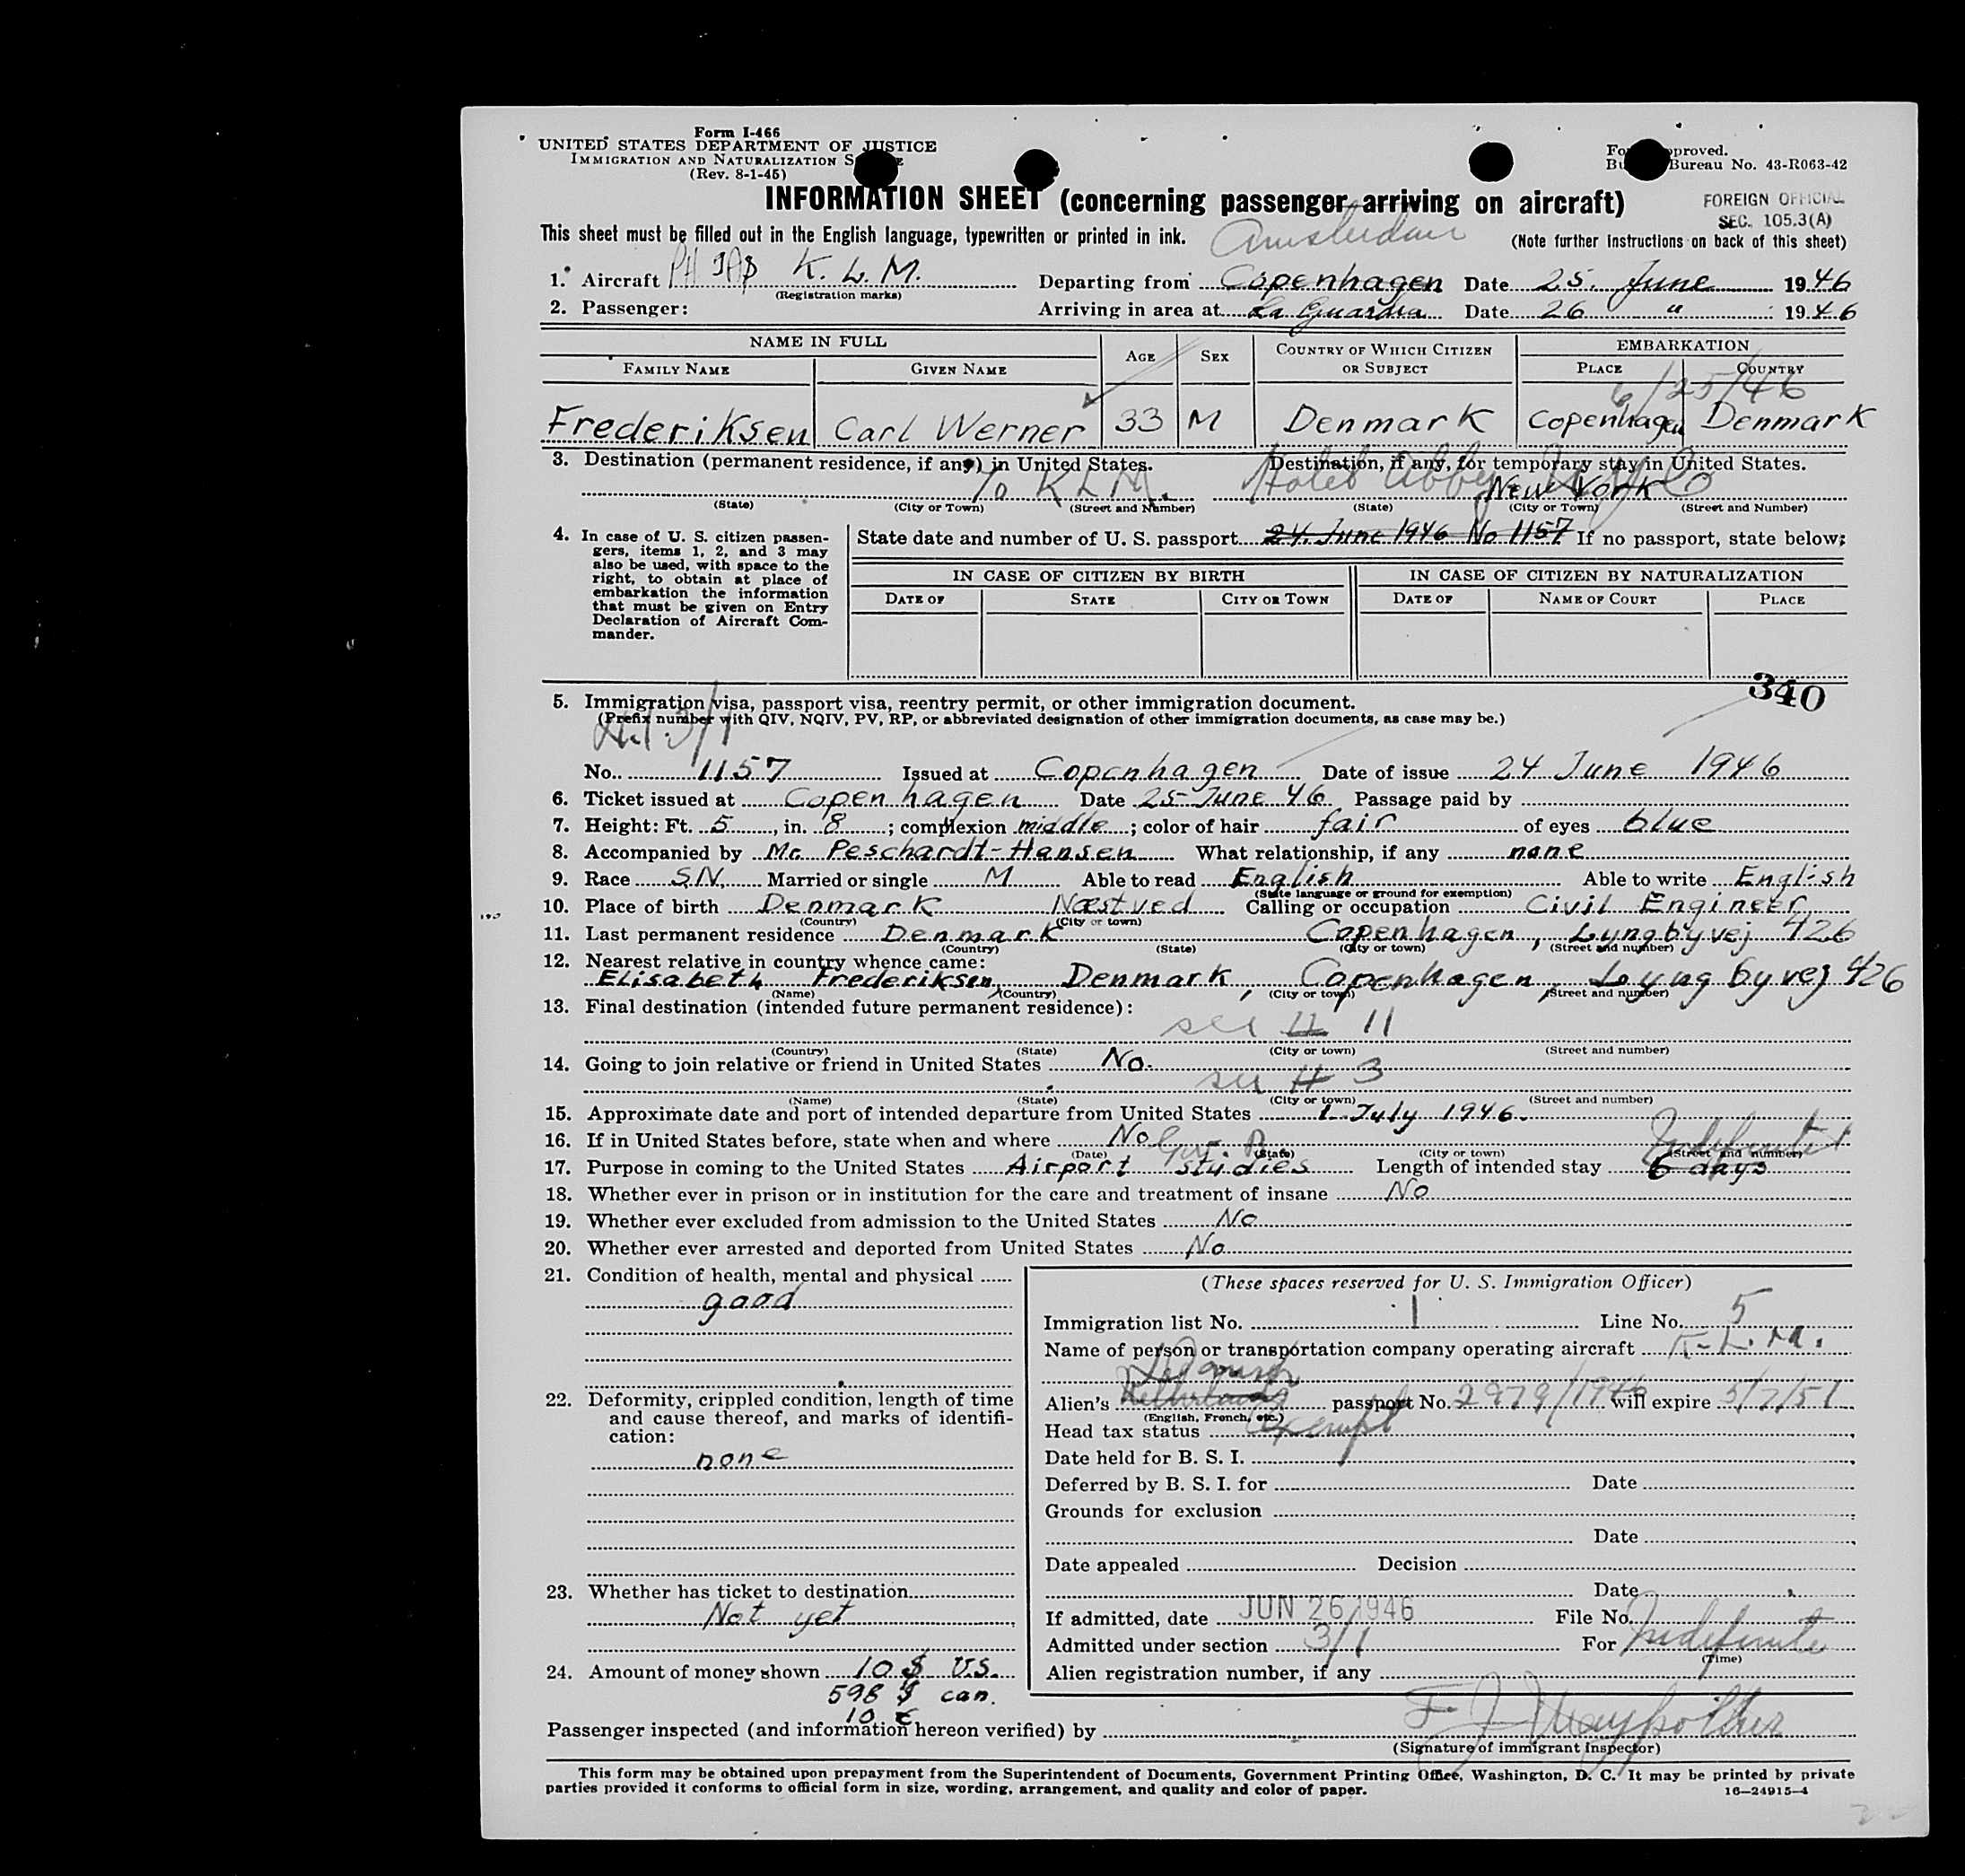 Form I-466
UNITED STATES DEPARTMENT OF JUSTICE
IMMIGRATION AND NATURALIZATION S
(Rev. 8-1-45)
Fo pproved.
Bu Bureau No. 43-R063-42
INFORMATION SHEET (concerning passenger arriving on aircraft)
FOREIGN OFFICIAL
SEC. 105.3(A)
This sheet must be filled out in the English language, typewritten or printed in ink.
Amsterdam
(Note further instructions on back of this sheet)
1. Aircraft K. L. M. Departing from Copenhagen Date 25. June 1946
(Registration marks)
2. Passenger: Arriving in area at La Guardia Date 26 " 1946
NAME IN FULL AGE SEX COUNTRY OF WHICH CITIZEN OR SUBJECT EMBARKATION
FAMILY NAME GIVEN NAME PLACE COUNTRY
6/25/46
Frederiksen Carl Werner 33 M Denmark Copenhagen Denmark
3. Destination (permanent residence, if any) in United States. Destination, if any, for temporary stay in United States.
% K L M. Hotel Abbey New York
(State) (City or Town) (Street and Number) (State) (City or Town) (Street and Number)
4. In case of U. S. citizen passengers, items 1, 2, and 3 may also be used, with space to the right, to obtain at place of embarkation the information that must be given on Entry Declaration of Aircraft Commander.
State date and number of U. S. passport 24. June 1946 No 1157 If no passport, state below:
IN CASE OF CITIZEN BY BIRTH IN CASE OF CITIZEN BY NATURALIZATION
DATE OF STATE CITY OR TOWN DATE OF NAME OF COURT PLACE
340
5. Immigration visa, passport visa, reentry permit, or other immigration document.
(Prefix number with QIV, NQIV, PV, RP, or abbreviated designation of other immigration documents, as case may be.)
3/1
No. 1157 Issued at Copenhagen Date of issue 24 June 1946
6. Ticket issued at Copenhagen Date 25 June 46 Passage paid by
7. Height: Ft. 5, in. 8; complexion middle; color of hair fair of eyes blue
8. Accompanied by Mr. Peschardt-Hansen What relationship, if any none
9. Race S.N. Married or single M Able to read English Able to write English
(State language or ground for exemption)
10. Place of birth Denmark Næstved Calling or occupation Civil Engineer
(Country) (City or town)
11. Last permanent residence Denmark Copenhagen, Lyngbyvej 426
(Country) (State) (City or town) (Street and number)
12. Nearest relative in country whence came:
Elisabeth Frederiksen, Denmark, Copenhagen, Lyngbyvej 426
(Name) (Country) (City or town) (Street and number)
13. Final destination (intended future permanent residence):
see # 11
(Country) (State) (City or town) (Street and number)
14. Going to join relative or friend in United States No.
see # 3
(Name) (State) (City or town) (Street and number)
15. Approximate date and port of intended departure from United States 1. July 1946.
16. If in United States before, state when and where No
(Date) (State) (City or town) (Street and number)
Indefinite
17. Purpose in coming to the United States Airport studies Length of intended stay 6 days
18. Whether ever in prison or in institution for the care and treatment of insane No
19. Whether ever excluded from admission to the United States No
20. Whether ever arrested and deported from United States No
21. Condition of health, mental and physical
good
22. Deformity, crippled condition, length of time and cause thereof, and marks of identification:
none
23. Whether has ticket to destination
Not yet
24. Amount of money shown 10 $ U.S.
598 $ can.
10 £
(These spaces reserved for U. S. Immigration Officer)
Immigration list No. 1 Line No. 5
Name of person or transportation company operating aircraft K.L.M.
Danish
Alien's Netherlands passport No. 2979/1946 will expire 5/7/51
(English, French, etc.)
Head tax status exempt
Date held for B. S. I.
Deferred by B. S. I. for Date
Grounds for exclusion
Date
Date appealed Decision
Date
If admitted, date JUN 26 1946 File No.
Admitted under section 3/1 For Indefinite
(Time)
Alien registration number, if any
Passenger inspected (and information hereon verified) by
(Signature of immigrant inspector)
This form may be obtained upon prepayment from the Superintendent of Documents, Government Printing Office, Washington, D. C. It may be printed by private
parties provided it conforms to official form in size, wording, arrangement, and quality and color of paper.
16—24915-4